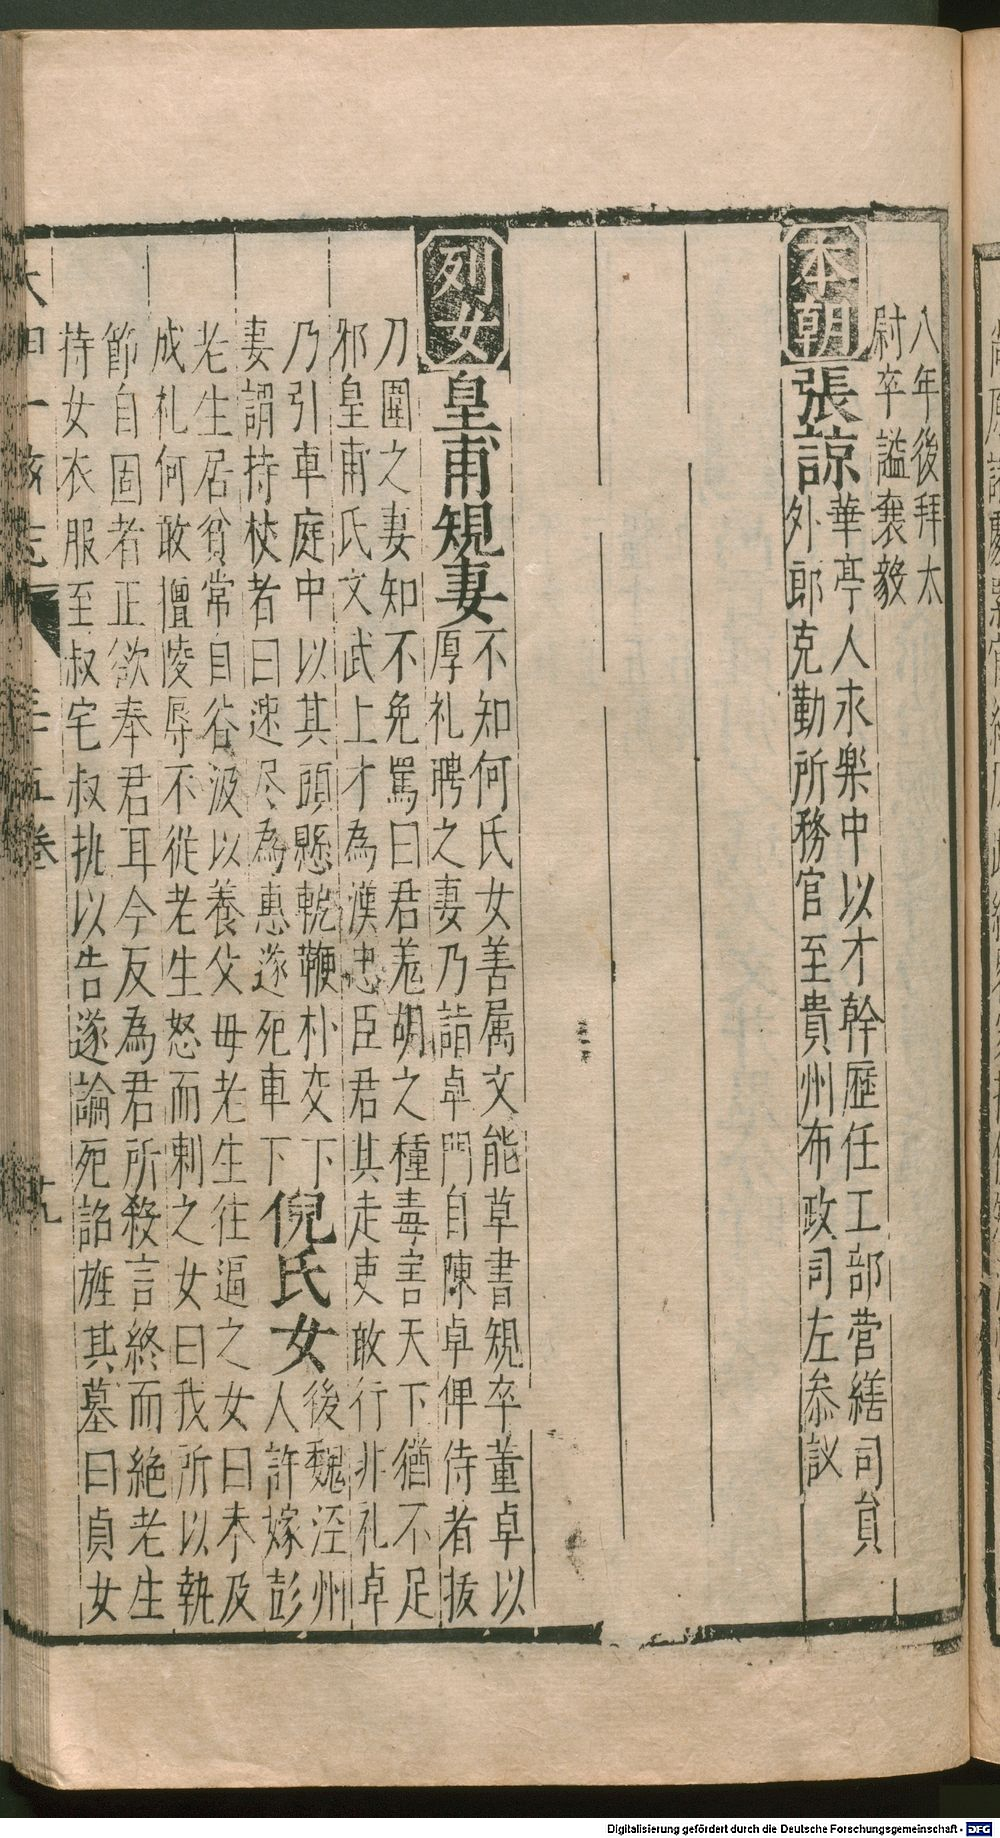 八年後拜太
尉卒謚襄毅
本朝
張諒
華亭人永樂中以才幹歷任工部營繕司員
外郎克勤所務官至貴州布政司左叅議
列女
皇甫規妻
不知何氏女善属文能草書規卒董卓以
厚礼聘之妻乃詣卓門自陳卓俾侍者拔
刀圍之妻知不免罵曰君羌胡之種毒害天下猶不足
邪皇甫氏文武上才為漢忠臣君其走吏敢行非礼卓
乃引車庭中以其頭懸軶鞭朴交下
妻謂持杖者曰速尽為惠遂死車下
倪氏女
後魏涇州
人許嫁彭
老生居貧常自谷汲以養父母老生往逼之女曰未及
成礼何敢擅陵辱不從老生怒而刺之女曰我所以執
節自固者正欲奉君耳今反為君所殺言終而絶老生
持女衣服至叔宅叔执以告遂論死詔旌其墓曰貞女
大明一統志
卷
Digitalisierung gefördert durch die Deutsche Forschungsgemeinschaft - DFG